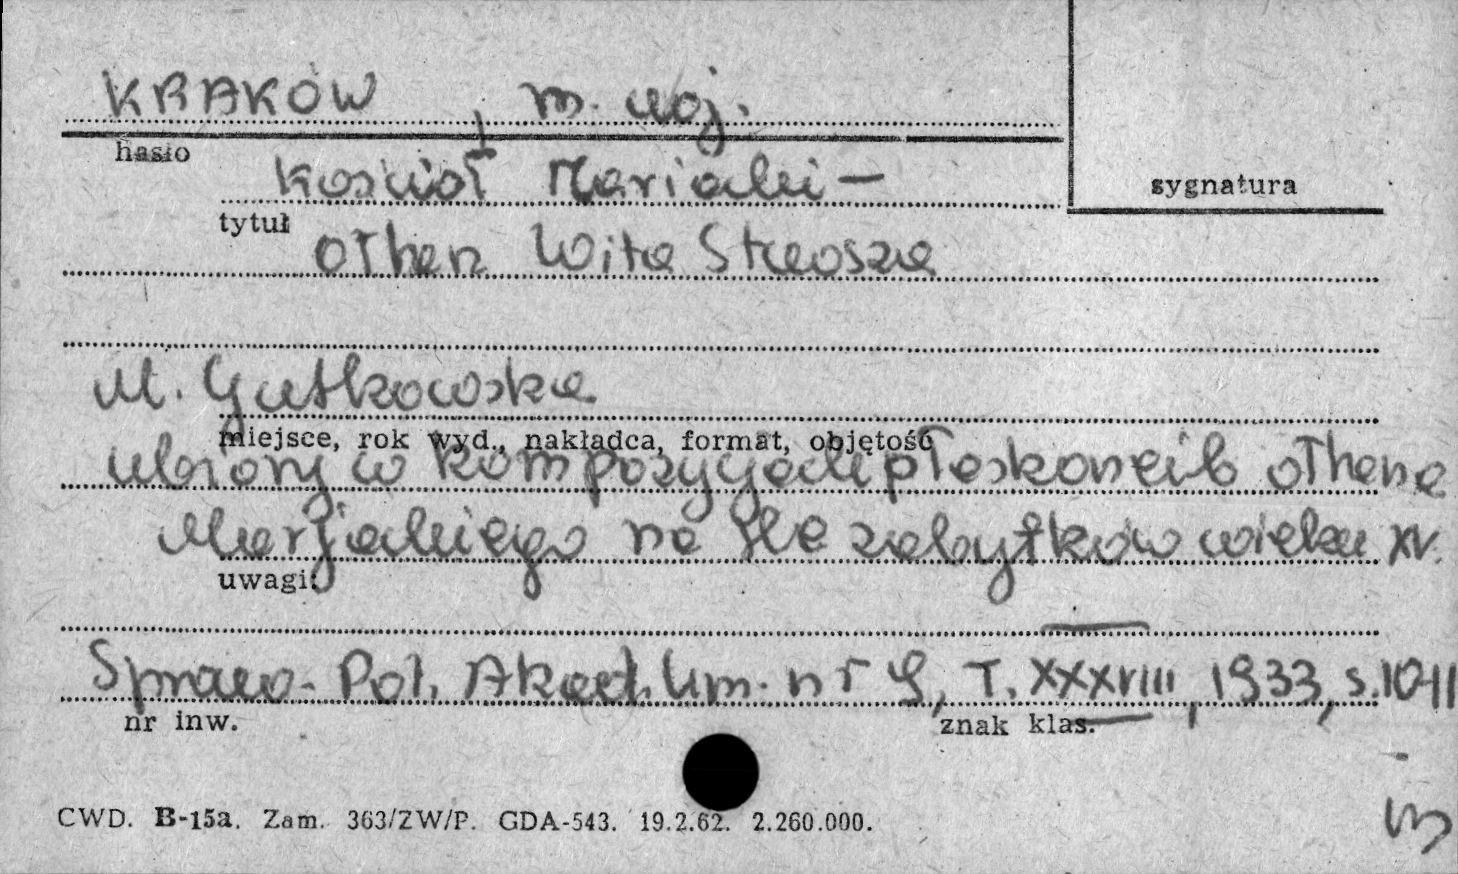 KRAKÓW, m. woj.
hasło
Kościół Mariacki —
sygnatura
tytuł
ołtarz Wita Stwosza
M. Gutkowska
miejsce, rok wyd., nakładca, format, objętość
Ubiory w kompozycjach płaskorzeźb ołtarza
Marjackiego na tle zabytków wieku XV.
uwagi:
Spraw. Pol. Akad. Um. nr 9, T. XXXVIII, 1933, s. 10-11
nr inw.
znak klas.
CWD. B-15a. Zam. 363/ZW/P. GDA-543. 19.2.62. 2.260.000.